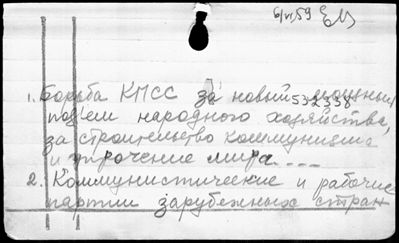 6/VI 59
1. Борьба КПСС за новый мощный
532338
под'ем народного хозяйства,
за строительство коммунизма
и упрочение мира...
2. Коммунистические и рабочие
партии зарубежных стран